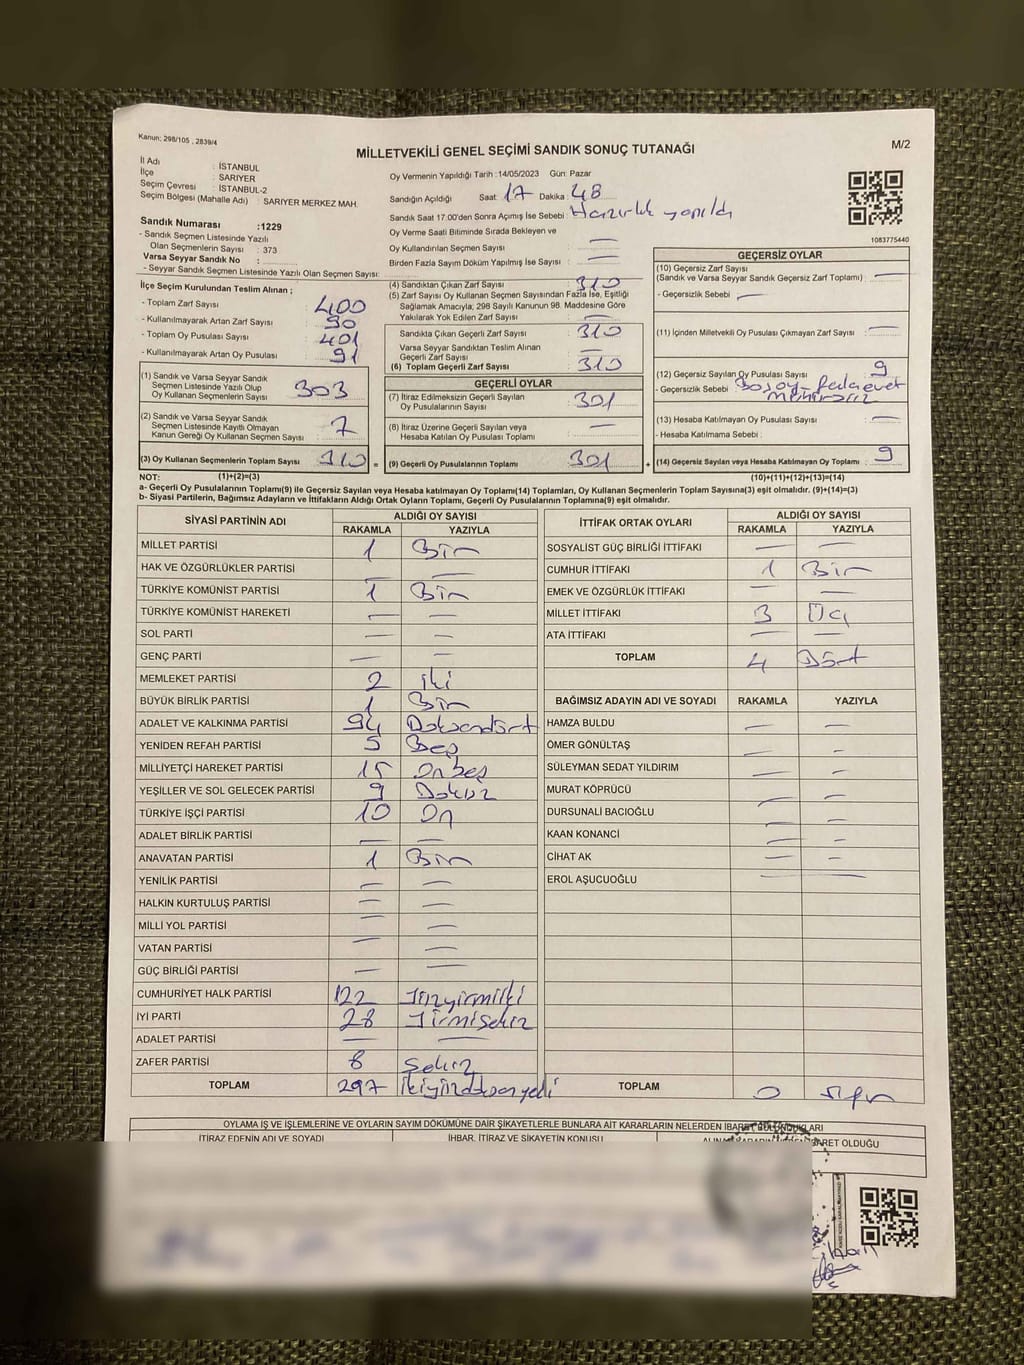 Kanun: 298/105 , 2839/4
MİLLETVEKİLİ GENEL SEÇİMİ SANDIK SONUÇ TUTANAĞI
M/2
İl Adı : İSTANBUL
İlçe : SARIYER
Seçim Çevresi : İSTANBUL-2
Seçim Bölgesi (Mahalle Adı) : SARIYER MERKEZ MAH.
Sandık Numarası :1229
- Sandık Seçmen Listesinde Yazılı
Olan Seçmenlerin Sayısı : 373
Varsa Seyyar Sandık No :
- Seyyar Sandık Seçmen Listesinde Yazılı Olan Seçmen Sayısı:
Oy Vermenin Yapıldığı Tarih :14/05/2023 Gün: Pazar
Sandığın Açıldığı Saat : 17 Dakika : 48
Sandık Saat 17:00'den Sonra Açımış İse Sebebi : Hazırlık yapıldı
Oy Verme Saati Bitiminde Sırada Bekleyen ve
Oy Kullandırılan Seçmen Sayısı : —
Birden Fazla Sayım Döküm Yapılmış İse Sayısı : —
1083775440
İlçe Seçim Kurulundan Teslim Alınan ;
- Toplam Zarf Sayısı : 400
- Kullanılmayarak Artan Zarf Sayısı : 90
- Toplam Oy Pusulası Sayısı : 401
- Kullanılmayarak Artan Oy Pusulası : 91
(1) Sandık ve Varsa Seyyar Sandık
Seçmen Listesinde Yazılı Olup
Oy Kullanan Seçmenlerin Sayısı 303
(2) Sandık ve Varsa Seyyar Sandık
Seçmen Listesinde Kayıtlı Olmayan
Kanun Gereği Oy Kullanan Seçmen Sayısı : 7
(3) Oy Kullanan Seçmenlerin Toplam Sayısı 310 =
(4) Sandıktan Çıkan Zarf Sayısı : 310
(5) Zarf Sayısı Oy Kullanan Seçmen Sayısından Fazla İse, Eşitliği
Sağlamak Amacıyla; 298 Sayılı Kanunun 98. Maddesine Göre
Yakılarak Yok Edilen Zarf Sayısı : —
Sandıkta Çıkan Geçerli Zarf Sayısı : 310
Varsa Seyyar Sandıktan Teslim Alınan
Geçerli Zarf Sayısı : —
(6) Toplam Geçerli Zarf Sayısı : 310
GEÇERLİ OYLAR
(7) İtiraz Edilmeksizin Geçerli Sayılan
Oy Pusulalarının Sayısı : 301
(8) İtiraz Üzerine Geçerli Sayılan veya
Hesaba Katılan Oy Pusulası Toplamı : —
(9) Geçerli Oy Pusulalarının Toplamı 301 +
GEÇERSİZ OYLAR
(10) Geçersiz Zarf Sayısı
(Sandık ve Varsa Seyyar Sandık Geçersiz Zarf Toplamı) : —
- Geçersizlik Sebebi : —
(11) İçinden Milletvekili Oy Pusulası Çıkmayan Zarf Sayısı : —
(12) Geçersiz Sayılan Oy Pusulası Sayısı : 9
- Geçersizlik Sebebi :
(13) Hesaba Katılmayan Oy Pusulası Sayısı : —
- Hesaba Katılmama Sebebi :
(14) Geçersiz Sayılan veya Hesaba Katılmayan Oy Toplamı : 9
NOT: (1)+(2)=(3) (10)+(11)+(12)+(13)=(14)
a- Geçerli Oy Pusulalarının Toplamı(9) ile Geçersiz Sayılan veya Hesaba Katılmayan Oy Toplamı(14) Toplamları, Oy Kullanan Seçmenlerin Toplam Sayısına(3) eşit olmalıdır. (9)+(14)=(3)
b- Siyasi Partilerin, Bağımsız Adayların ve İttifakların Aldığı Ortak Oyların Toplamı, Geçerli Oy Pusulalarının Toplamına(9) eşit olmalıdır.
SİYASİ PARTİNİN ADI ALDIĞI OY SAYISI
RAKAMLA YAZIYLA
MİLLET PARTİSİ 1 Bir
HAK VE ÖZGÜRLÜKLER PARTİSİ — —
TÜRKİYE KOMÜNİST PARTİSİ 1 Bir
TÜRKİYE KOMÜNİST HAREKETİ — —
SOL PARTİ — —
GENÇ PARTİ — —
MEMLEKET PARTİSİ 2 iki
BÜYÜK BİRLİK PARTİSİ 1 Bir
ADALET VE KALKINMA PARTİSİ 94 Doksandört
YENİDEN REFAH PARTİSİ 5 Beş
MİLLİYETÇİ HAREKET PARTİSİ 15 Onbeş
YEŞİLLER VE SOL GELECEK PARTİSİ 9 Dokuz
TÜRKİYE İŞÇİ PARTİSİ 10 On
ADALET BİRLİK PARTİSİ — —
ANAVATAN PARTİSİ 1 Bir
YENİLİK PARTİSİ — —
HALKIN KURTULUŞ PARTİSİ — —
MİLLİ YOL PARTİSİ — —
VATAN PARTİSİ — —
GÜÇ BİRLİĞİ PARTİSİ — —
CUMHURİYET HALK PARTİSİ 122 Yüzyirmiiki
İYİ PARTİ 28 Yirmisekiz
ADALET PARTİSİ — —
ZAFER PARTİSİ 8 Sekiz
TOPLAM 297 ikiyüzdoksanyedi
İTTİFAK ORTAK OYLARI ALDIĞI OY SAYISI
RAKAMLA YAZIYLA
SOSYALİST GÜÇ BİRLİĞİ İTTİFAKI — —
CUMHUR İTTİFAKI 1 Bir
EMEK VE ÖZGÜRLÜK İTTİFAKI — —
MİLLET İTTİFAKI 3 Üç
ATA İTTİFAKI — —
TOPLAM 4 Dört
BAĞIMSIZ ADAYIN ADI VE SOYADI RAKAMLA YAZIYLA
HAMZA BULDU — —
ÖMER GÖNÜLTAŞ — —
SÜLEYMAN SEDAT YILDIRIM — —
MURAT KÖPRÜCÜ — —
DURSUNALİ BACIOĞLU — —
KAAN KONANCİ — —
CİHAT AK — —
EROL AŞUCUOĞLU — —
TOPLAM 0 sıfır
OYLAMA İŞ VE İŞLEMLERİNE VE OYLARIN SAYIM DÖKÜMÜNE DAİR ŞİKAYETLERLE BUNLARA AİT KARARLARIN NELERDEN İBARET BULUNDUKLARI
İTİRAZ EDENİN ADI VE SOYADI İHBAR, İTİRAZ VE ŞİKAYETİN KONUSU OLDUĞU